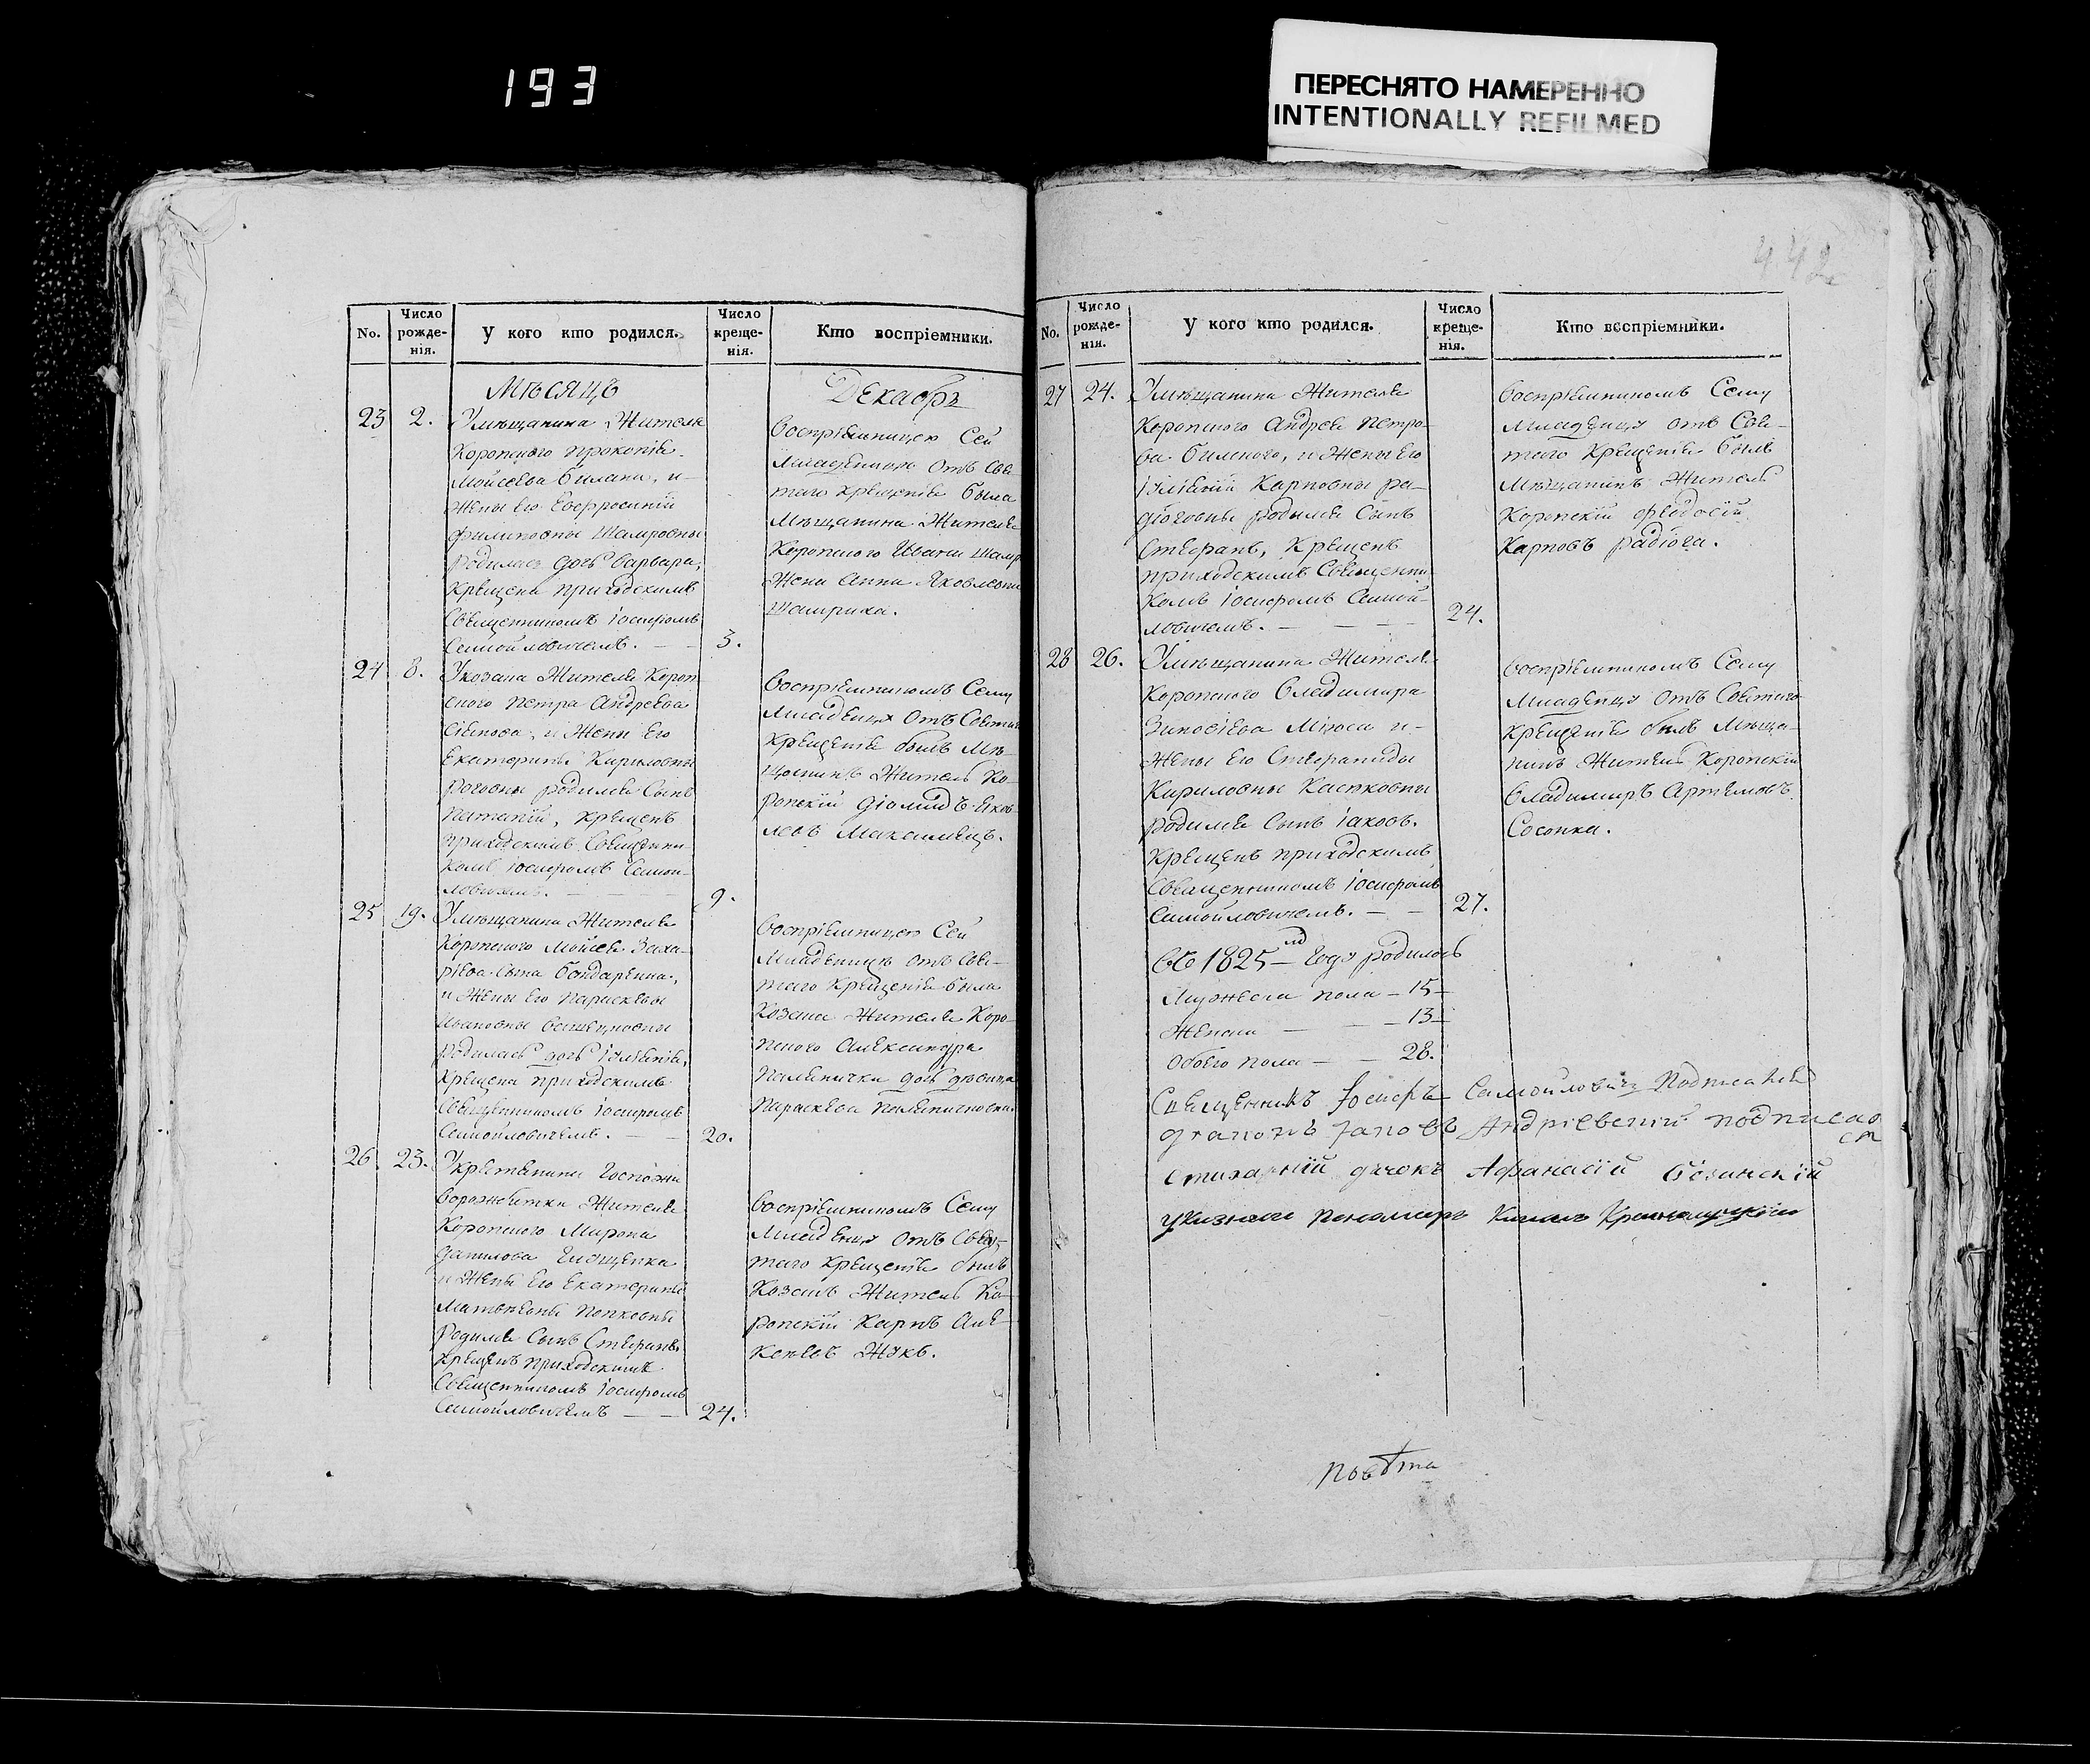 193
ПЕРЕСНЯТО НАМЕРЕННО
INTENTIONALLY REFILMED
442
No.
Число рожденія.
У кого кто родился.
Число крещенія.
Кто воспріемники.
Мѣсяцъ
Декабрь
23
2.
Умѣщанина Жителя
Коропского Прокопія
Мойсеева Билана, и
Жены Его Евфросиніи
Филиповны Шамровны
родилась дочь Варвара,
Крещена приходскимъ
Священникомъ Іосифомъ
Самойловичемъ.
3.
Воспріемницею Сей
Младеницы отъ Свя
таго Крещенія была
Мѣщанина Жителя
Коропского Ивана Шамр
Жена Анна Яковлевна
Шамриха.
24
8.
Укозака Жителя Короп
ского Петра Андреева
и Жены Его
Екатерины Кириловны
Роговны родился Сынъ
Крещенъ
приходскимъ Священни
комъ Іосифомъ Самой
ловичемъ.
9.
Воспріемникомъ Сему
Младенцу отъ Святаго
Крещенія былъ Мѣ
щанинъ Житель Ко
ропскій Діомидъ Яков
левъ Максимецъ.
25
19.
Умѣщанина Жителя
Коропского Мойсея Заха
ріева Сына Бондаренка,
и Жены Его Параскевы
Ивановны
родилась дочь Іуліанія,
Крещена приходскимъ
Священникомъ Іосифомъ
Самойловичемъ.
20.
Воспріемницею Сей
Младеницы отъ Свя
таго Крещенія была
Козака Жителя Коро
пского Александра
дочь девица
Параскева
26
23.
Укрестянина Госпожи
Жителя
Коропского Мирона
Данилова
и Жены Его Екатерины
Матвѣевны Попковны
родился Сынъ Стефанъ
Крещенъ приходскимъ
Священникомъ Іосифомъ
Самойловичемъ
24.
Воспріемникомъ Сему
Младенцу отъ Свя
таго Крещенія былъ
Козакъ Житель Ко
ропскій Карпъ Але
ксѣевъ Жукъ.
No.
Число рожденія.
У кого кто родился.
Число крещенія.
Кто воспріемники.
27
24.
Умѣщанина Жителя
Коропского Андрея Петро
ва Билного, и Жены Его
Іуліаніи Карповны Ра
діоговны родился Сынъ
Стефанъ, Крещенъ
приходскимъ Священни
комъ Іосифомъ Самой
ловичемъ.
24.
Воспріемникомъ Сему
Младенцу отъ Свя
таго Крещенія былъ
Мѣщанинъ Житель
Коропскій Феодосій
Карповъ Радіога.
28
26.
Умѣщанина Жителя
Коропского Владимира
Зиновіева Міроса и
Жены Его Стефаниды
Кириловны Каспковны
родился Сынъ Іаковъ.
Крещенъ приходскимъ
Священникомъ Іосифомъ
Самойловичемъ.
27.
Воспріемникомъ Сему
Младенцу отъ Святаго
Крещенія былъ Мѣща
нинъ Житель Коропскій
Владимиръ Артемовъ
Сосонка.
Въ 1825 м Году родилось
Мужеска пола 15
Женска 13
Обоего пола 28.
Священникъ Іосифъ Самойловичъ подписался
Діаконъ Іаковъ Андріевскій подписался
Стихарній дячокъ Афанасій
Указный Пономарь
Повѣта